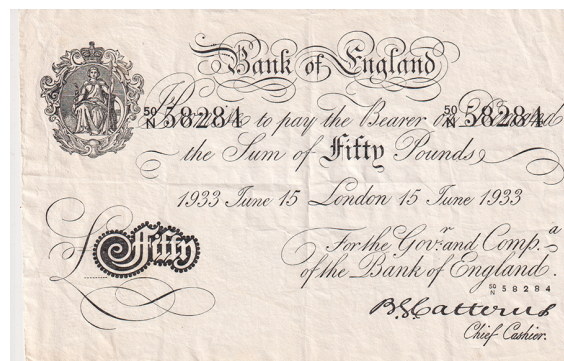 Bank of England
50/N 58284 50/N 58284
to pay the Bearer on Demand
the Sum of Fifty Pounds
1933 June 15 London 15 June 1933
For the Gov.r and Comp.a
of the Bank of England.
£ Fifty
50/N 58284
B G Catterns
Chief Cashier.